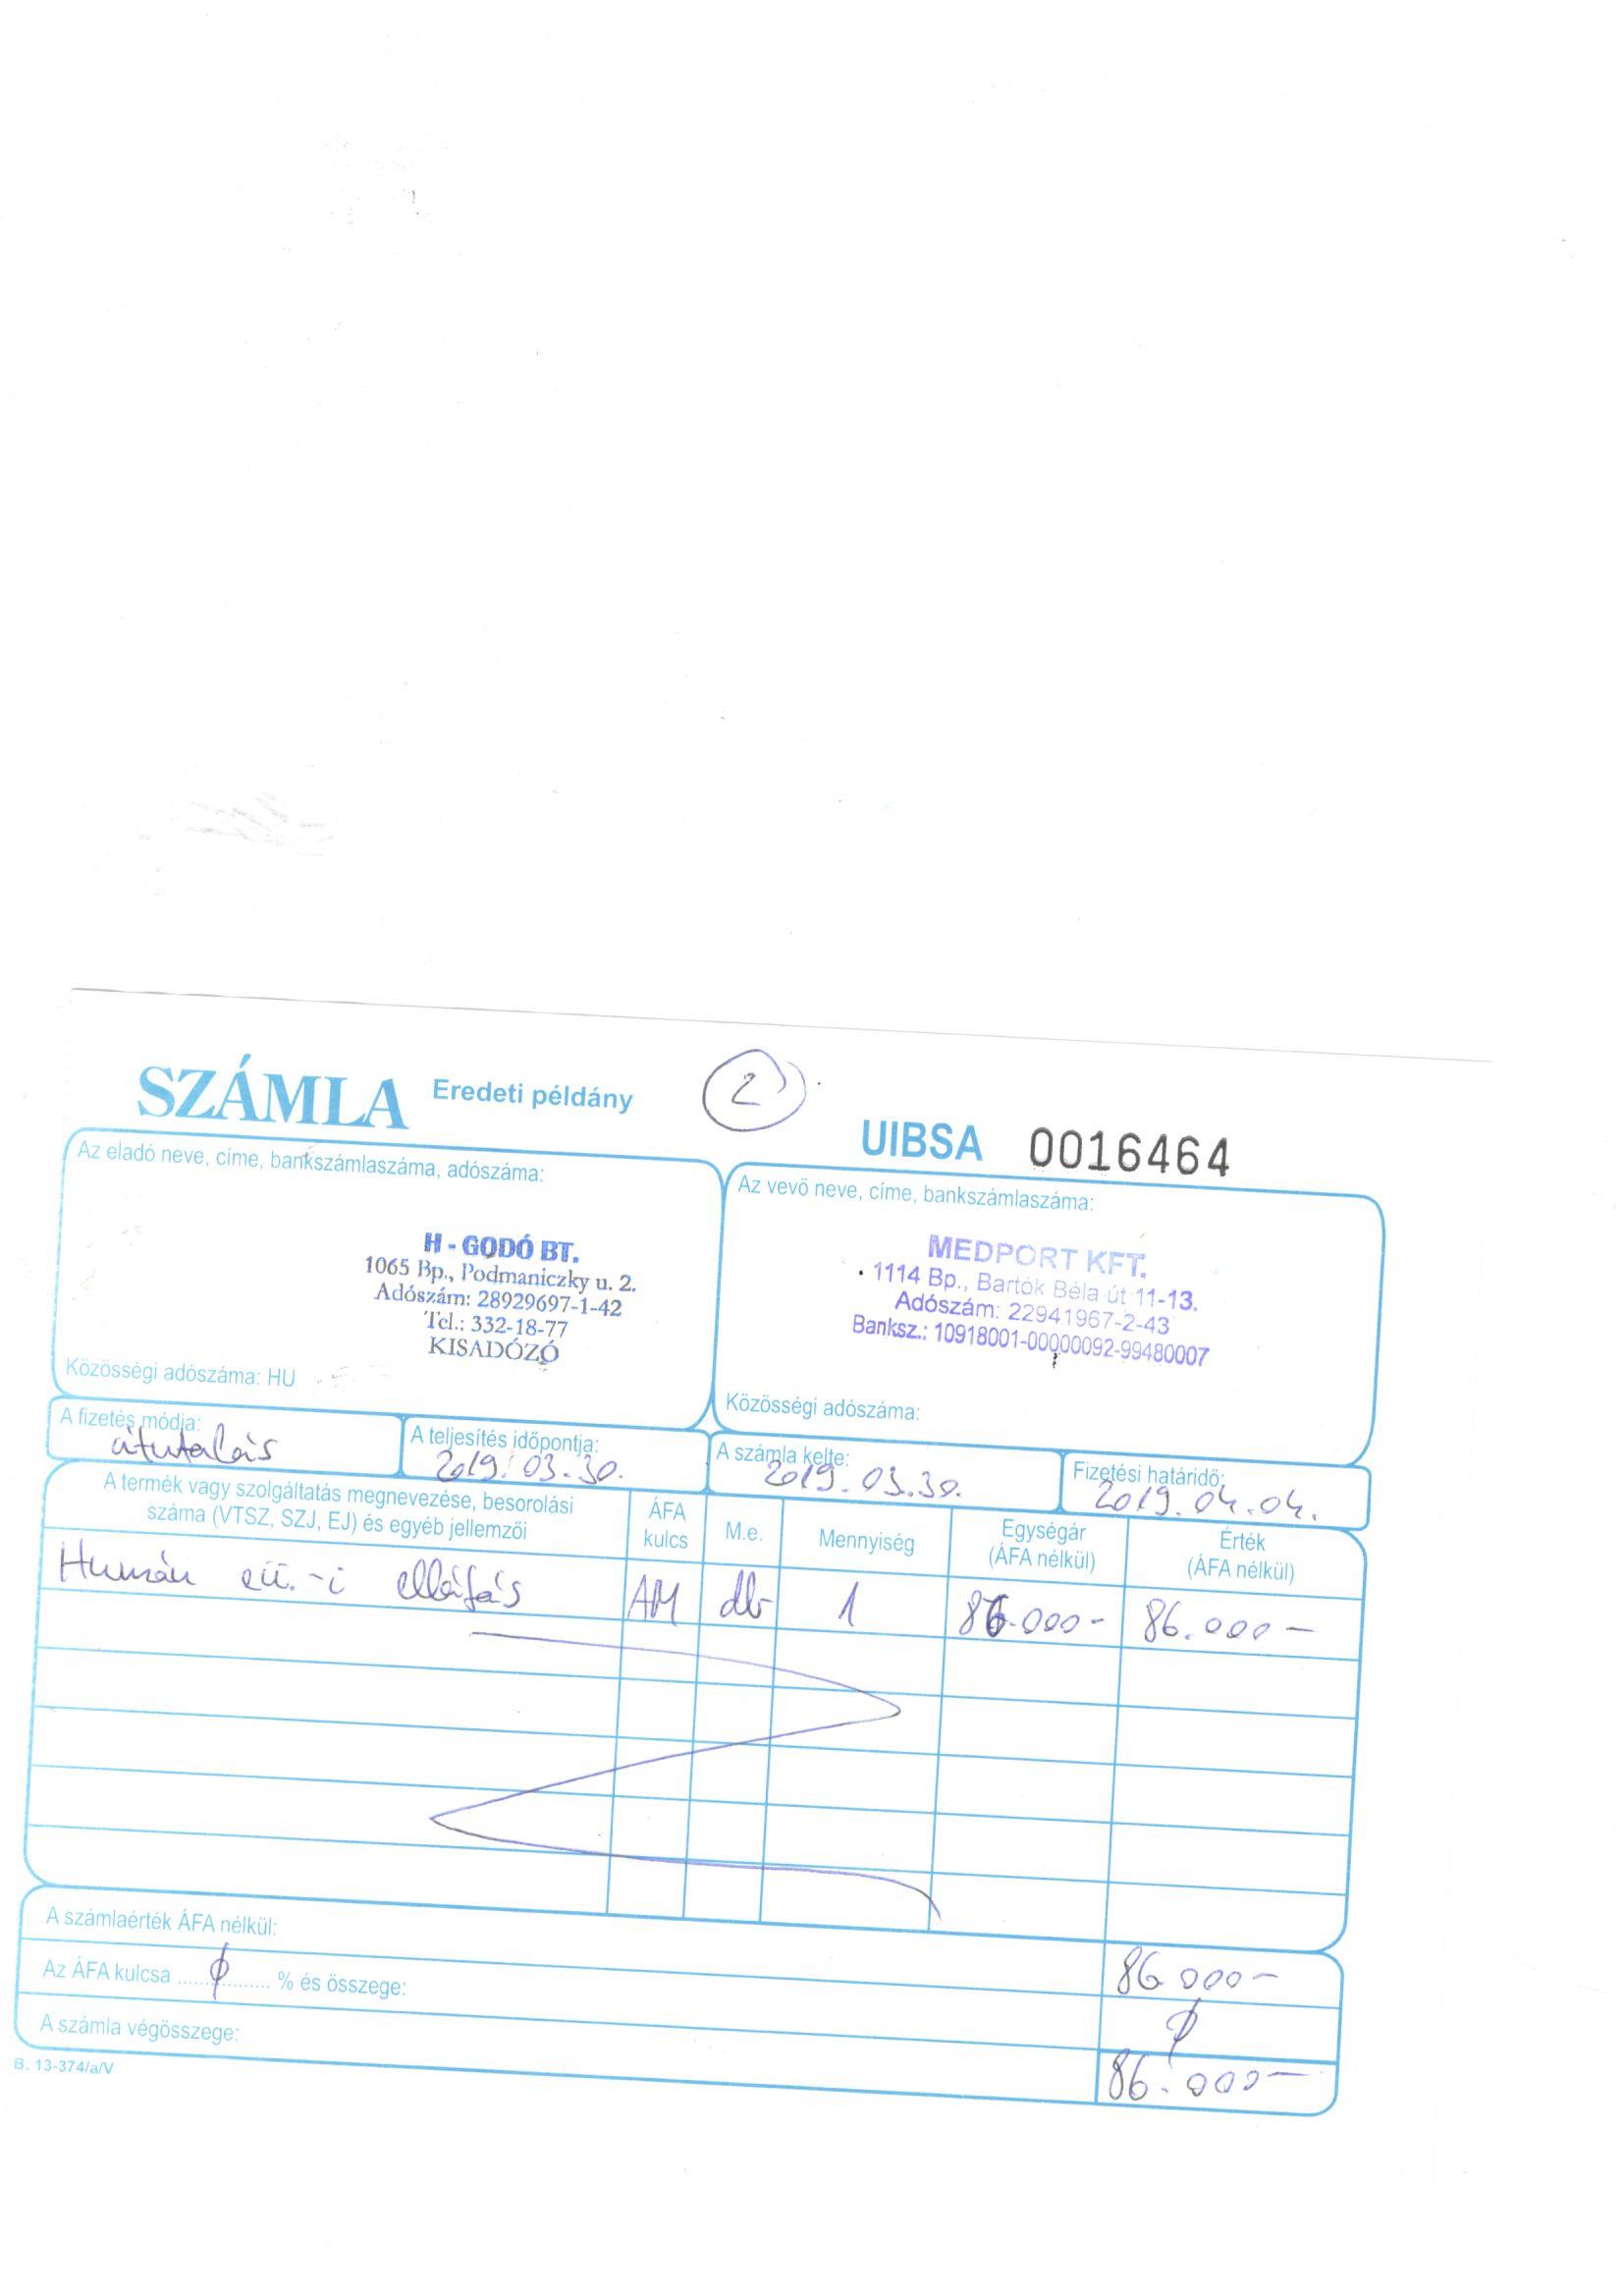 SZÁMLA Eredeti példány
2
UIBSA 0016464
Az eladó neve, címe, bankszámlaszáma, adószáma:
H - GODÓ BT.
1065 Bp., Podmaniczky u. 2.
Adószám: 28929697-1-42
Tel.: 332-18-77
KISADÓZÓ
Közösségi adószáma: HU
Az vevő neve, címe, bankszámlaszáma:
MEDPORT KFT.
1114 Bp., Bartók Béla út 11-13.
Adószám: 22941967-2-43
Banksz.: 10918001-00000092-99480007
Közösségi adószáma:
A fizetés módja:
átutalás
A teljesítés időpontja:
2019. 03. 30.
A számla kelte:
2019. 03. 30.
Fizetési határidő:
2019. 04. 04.
A termék vagy szolgáltatás megnevezése, besorolási
száma (VTSZ, SZJ, EJ) és egyéb jellemzői
ÁFA
kulcs
M.e.
Mennyiség
Egységár
(ÁFA nélkül)
Érték
(ÁFA nélkül)
Humán eü.-i ellátás AM db 1 86.000- 86.000-
A számlaérték ÁFA nélkül: 86 000-
Az ÁFA kulcsa ........0........ % és összege: 0
A számla végösszege: 86.000-
B. 13-374/a/V